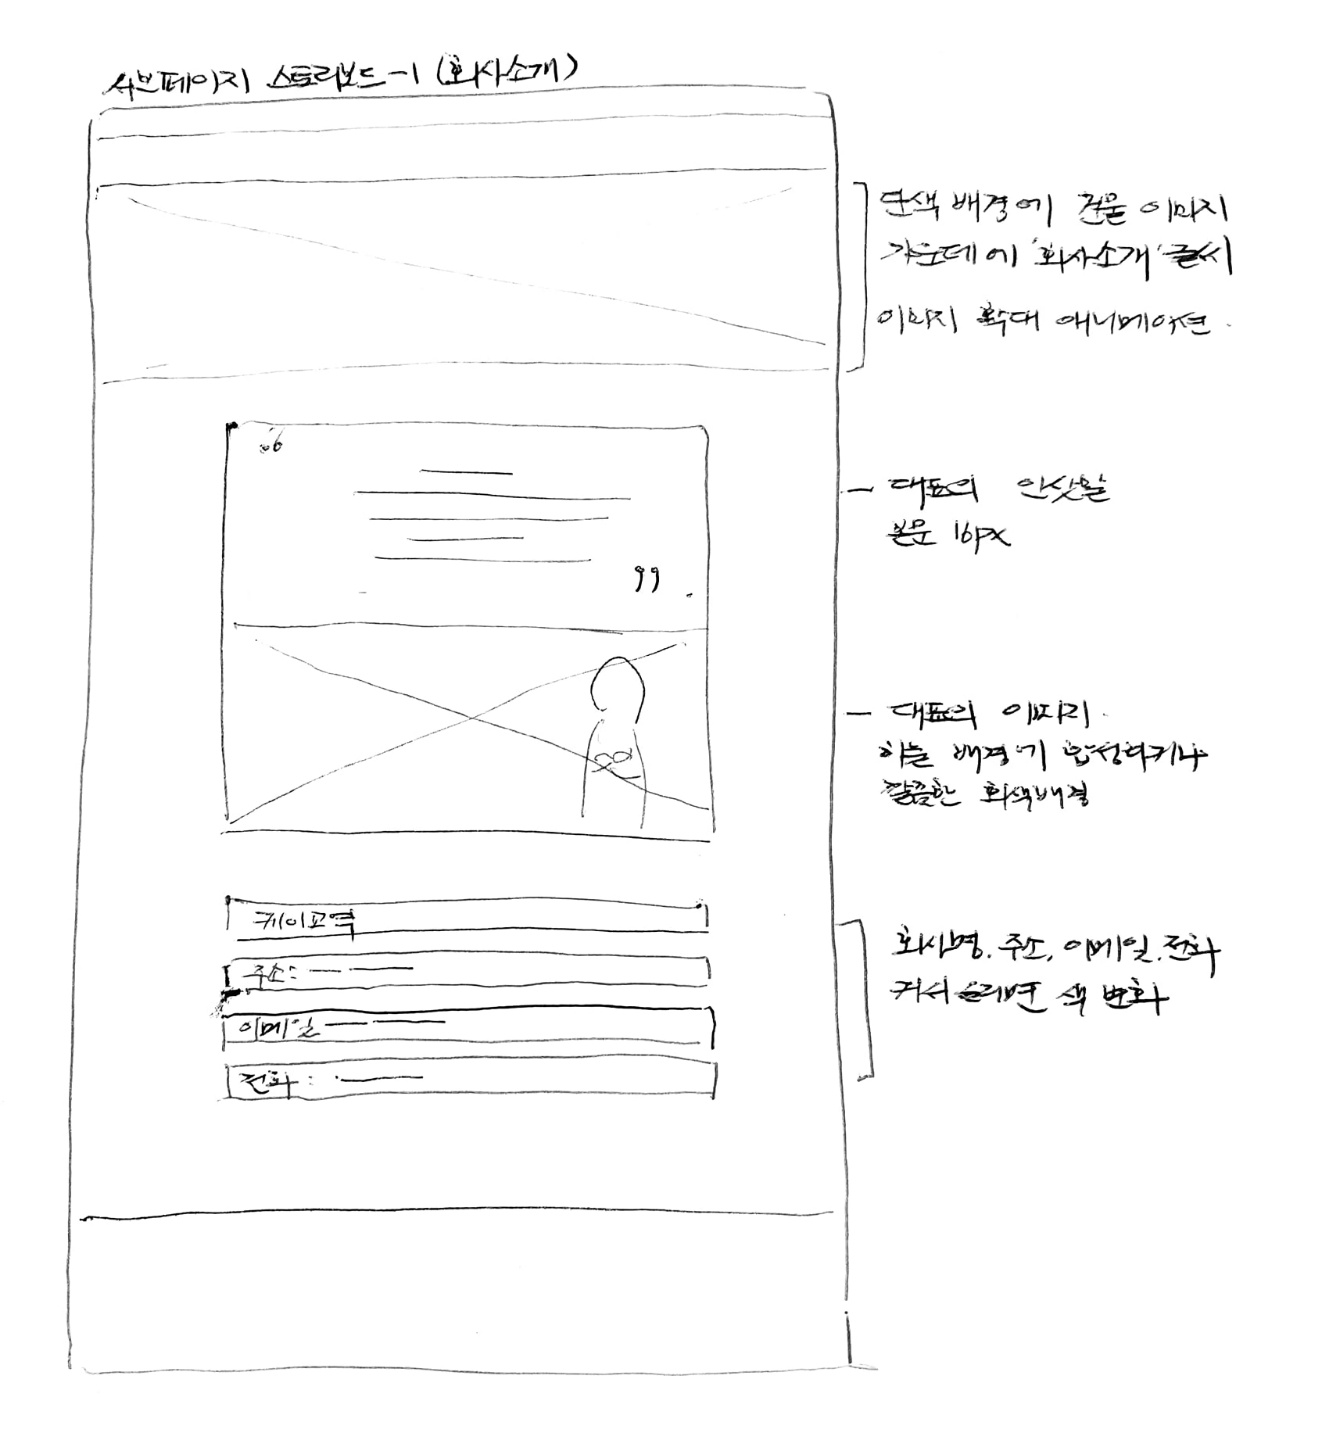 서브페이지 스토리보드-1 (회사소개)
단색 배경에 건물 이미지
가운데에 '회사소개' 글씨
이미지 확대 애니메이션.
66
99
대표의 인삿말
본문 16px
대표의 이미지.
하늘 배경에 합성하거나
깔끔한 회색배경
케이교역
주소:
이메일
전화:
회사명. 주소, 이메일. 전화
커서 올리면 색 변화